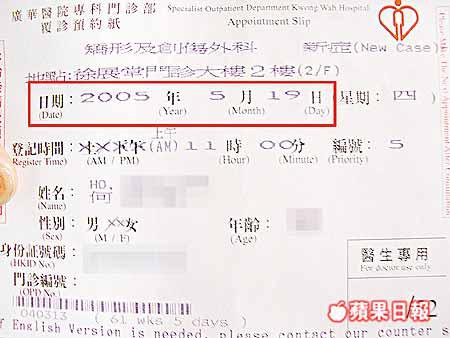 廣華醫院專科門診部
Specialist Outpatient Department Kwong Wah Hospital
覆診預約紙
Appointment Slip
矯形及創傷外科 新症(New Case)
地點:徐展堂門診大樓2樓(2/F)
日期: 2005 年 5 月 19 日 (星期: 四)
(Date) (Year) (Month) (Day)
上午
登記時間: 上午 下午 (AM) 11 時 00 分 編號: 5
(Register Time) (AM / PM) (Hour) (Minute) (Priority)
姓名: HO,
(Name) 何
性別: 男 女 年齡:
(Sex) (M / F) (Age)
身份證號碼:
(HKID No.)
門診編號:
(OPD No.)
醫生專用
For doctor use only
/52
蘋果日報
040313 ( 61 wks 5 days )
If English Version is needed, please contact our counter s